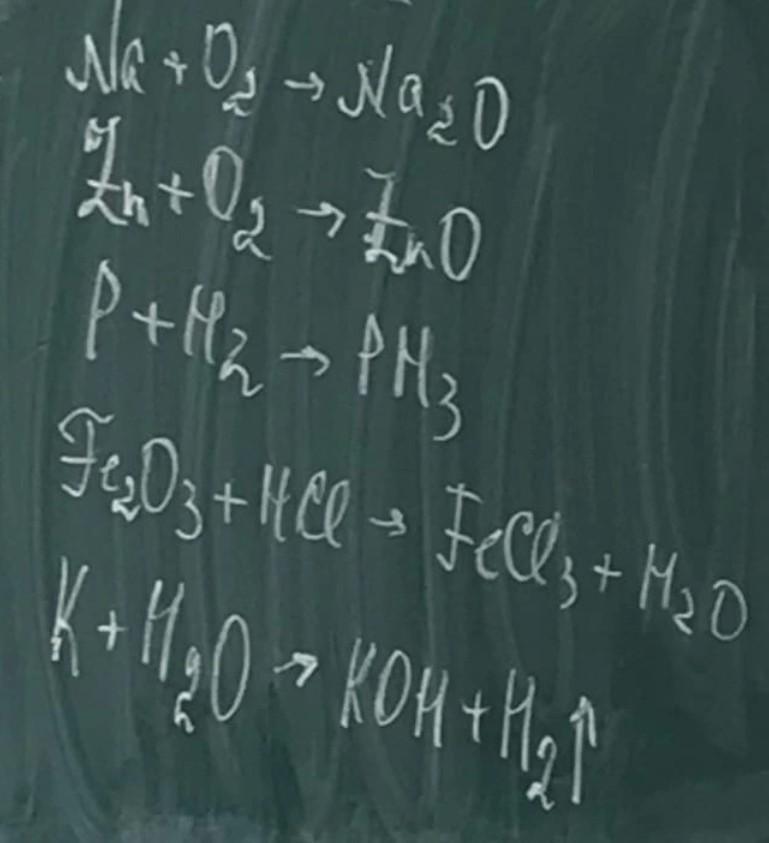 Na + O₂ → Na₂O
Zn + O₂ → ZnO
P + H₂ → PH₃
Fe₂O₃ + HCl → FeCl₃ + H₂O
K + H₂O → KOH + H₂↑